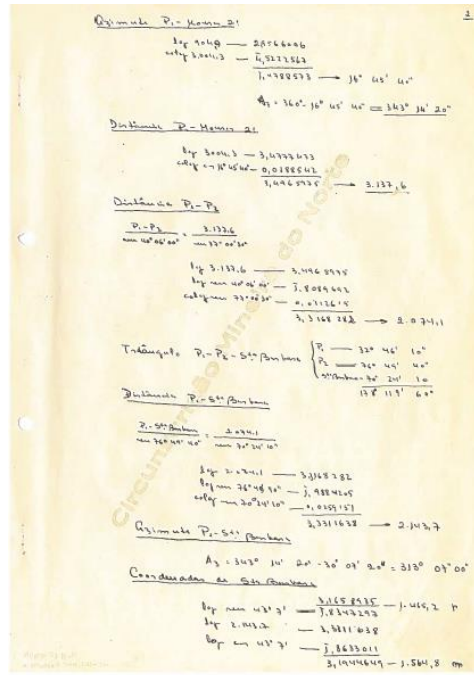 2
Azimute P₁ - Mouros 2:
log 904,9 — 2,9566006
colog 3.004,3 — 1̄,5222567
1̄,4788573 → 16° 45' 40"
Az = 360° - 16° 45' 40" = 343° 14' 20"
Distância P₁ - Mouros 2:
log 3004.3 — 3,4777433
colog cos 16° 45' 40" — 0,0188542
3,4965975 → 3.137,6
Distância P₁-P₂
P₁-P₂ / sen 40° 06' 00" = 3.137.6 /
log 3.137.6 — 3,4965975
log sen 40° 06' 00" — 1̄,8089692
3,3168282 → 2.074,1
Triângulo P₁ - P₂ - Stª Barbara
P₁ — 32° 46' 10"
P₂ — 76° 49' 40"
Stª Barbara — 70° 24' 10
178 119' 60"
Distância P₁ - Stª Barbara
P₁ - Stª Barbara / sen 76° 49' 40" = 2.074.1 / sen 70° 24' 10"
log 2.074.1 — 3,3168282
log sen 76° 49' 40" — 1̄,9884205
colog sen 70° 24' 10" — 0,0259151
3,3311638 → 2.143,7
Azimute P₁ - Stª Barbara
Az = 343° 14' 20" - 30° 07' 20" = 313° 07' 00"
Coordenadas de Stª Barbara
3,1658935 — 1.465,2
log sen 43° 7' — 1̄,8347297
log 2.143.7 — 3,3311638
log cos 43° 7' — 1̄,8633011
3,1944649 — 1.564,8 m
Circunscrição Mineira do Norte